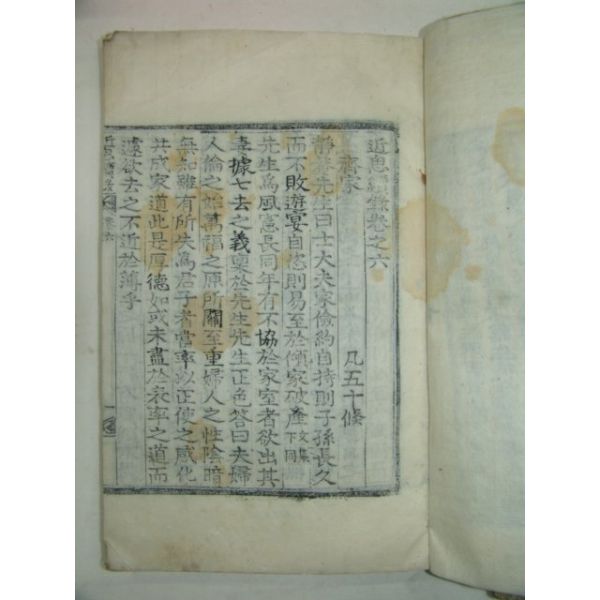 近思續錄卷之六
齊家
凡五十條
靜菴先生曰士大夫家儉約自持則子孫長久
而不敗遊宴自恣則易至於傾家破產文集下同
先生爲風憲長同年有不協於家室者欲出其
妻據七去之義稟於先生先生正色答曰夫婦
人倫之始萬福之原所關至重婦人之性陰暗
無知雖有所失爲君子者當率以正使之感化
共成家道此是厚德如或未盡於表率之道而
遽欲去之不近於薄乎